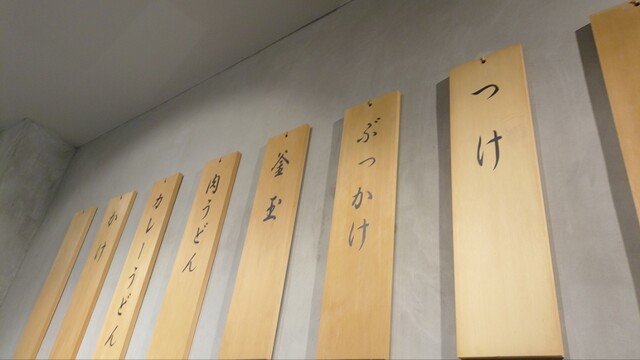 つけ
ぶっかけ
釜玉
肉うどん
カレーうどん
かけ